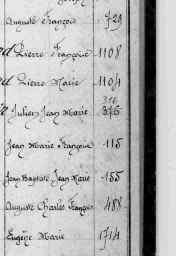 Auguste François 729
Pierre François 1108
Pierre Marie 1104
316
Julien Jean Marie 375
Jean Marie François 115
Jean Baptiste Jean Marie 155
Auguste Charles François 488
Eugène Marie 1714